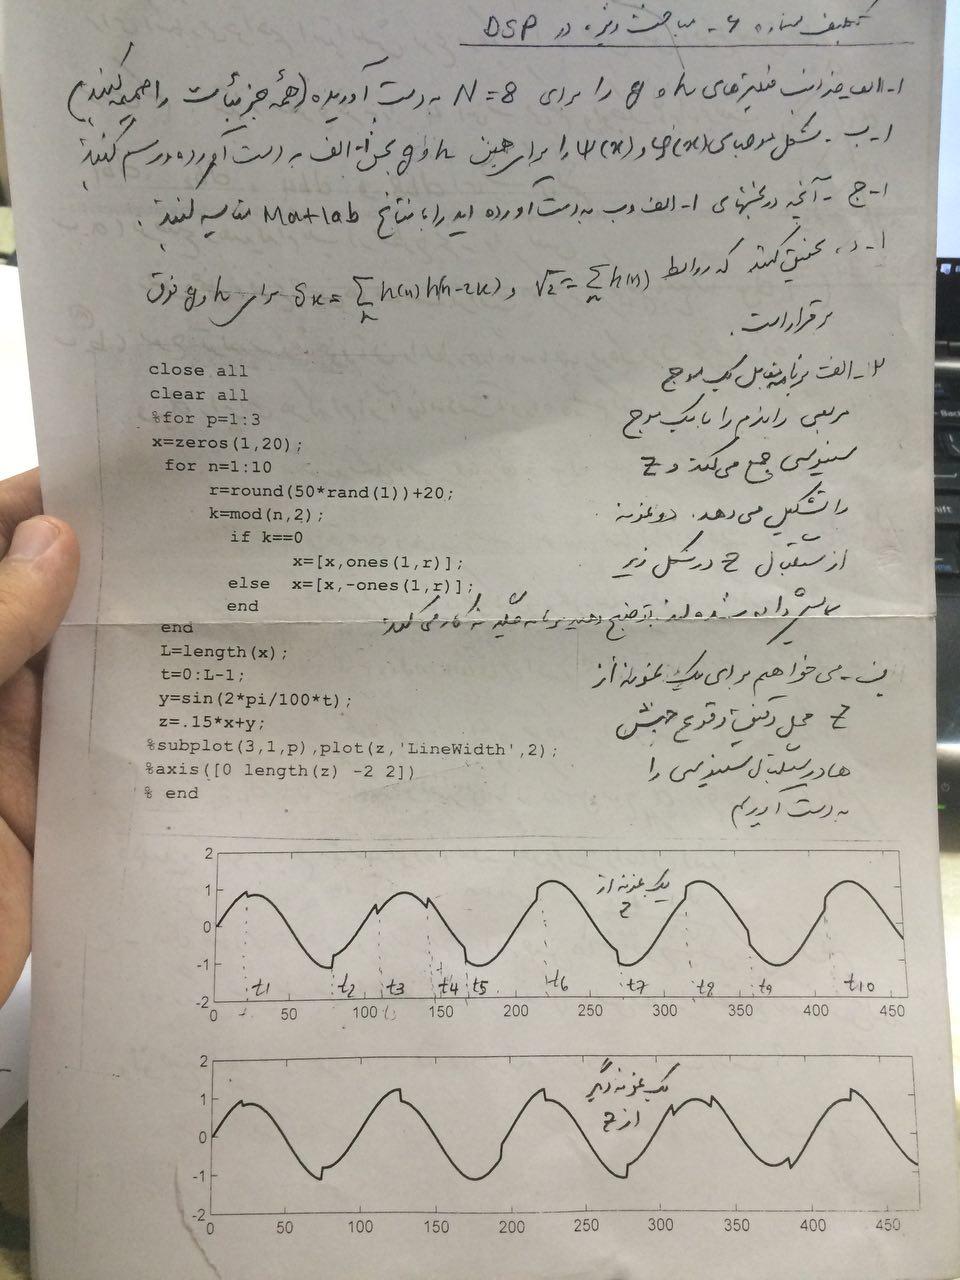 تکلیف شماره 6 - مباحث ویژه در DSP
1-الف - ضرایب فیلترهای h و g را برای N=8 به دست آورید. (همهٔ جزئیات را ضمیمه کنید)
1-ب - شکل موجهای φ(x) و ψ(x) را برای همین h و g بخش 1-الف به دست آورده و رسم کنید.
1-ج - آنچه در بخشهای 1-الف و ب به دست آورده اید را با نتایج Matlab مقایسه کنید.
1-د - تحقیق کنید که روابط √2 = Σ h(n) و δk = Σ h(n) h(n-2k) برای h و g فوق
n n
برقرار است.
2-الف برنامه مقابل یک موج
مربعی راندم را با یک موج
سینوسی جمع می کند و z
را تشکیل می دهد. دو نمونه
از سیگنال z در شکل زیر
نمایش داده شده اند. توضیح دهید برنامه چگونه کار می کند.
ب - می خواهیم برای یک نمونه از
z محل دقیق وقوع جهش
ها در سیگنال سینوسی را
به دست آوریم
close all
clear all
%for p=1:3
x=zeros(1,20);
for n=1:10
r=round(50*rand(1))+20;
k=mod(n,2);
if k==0
x=[x,ones(1,r)];
else x=[x,-ones(1,r)];
end
end
L=length(x);
t=0:L-1;
y=sin(2*pi/100*t);
z=.15*x+y;
%subplot(3,1,p),plot(z,'LineWidth',2);
%axis([0 length(z) -2 2])
% end
2
1
0
-1
-2
یک نمونه از
z
t1 t2 t3 t4 t5 t6 t7 t8 t9 t10
0 50 100 150 200 250 300 350 400 450
2
1
0
-1
-2
یک نمونه دیگر
از z
0 50 100 150 200 250 300 350 400 450